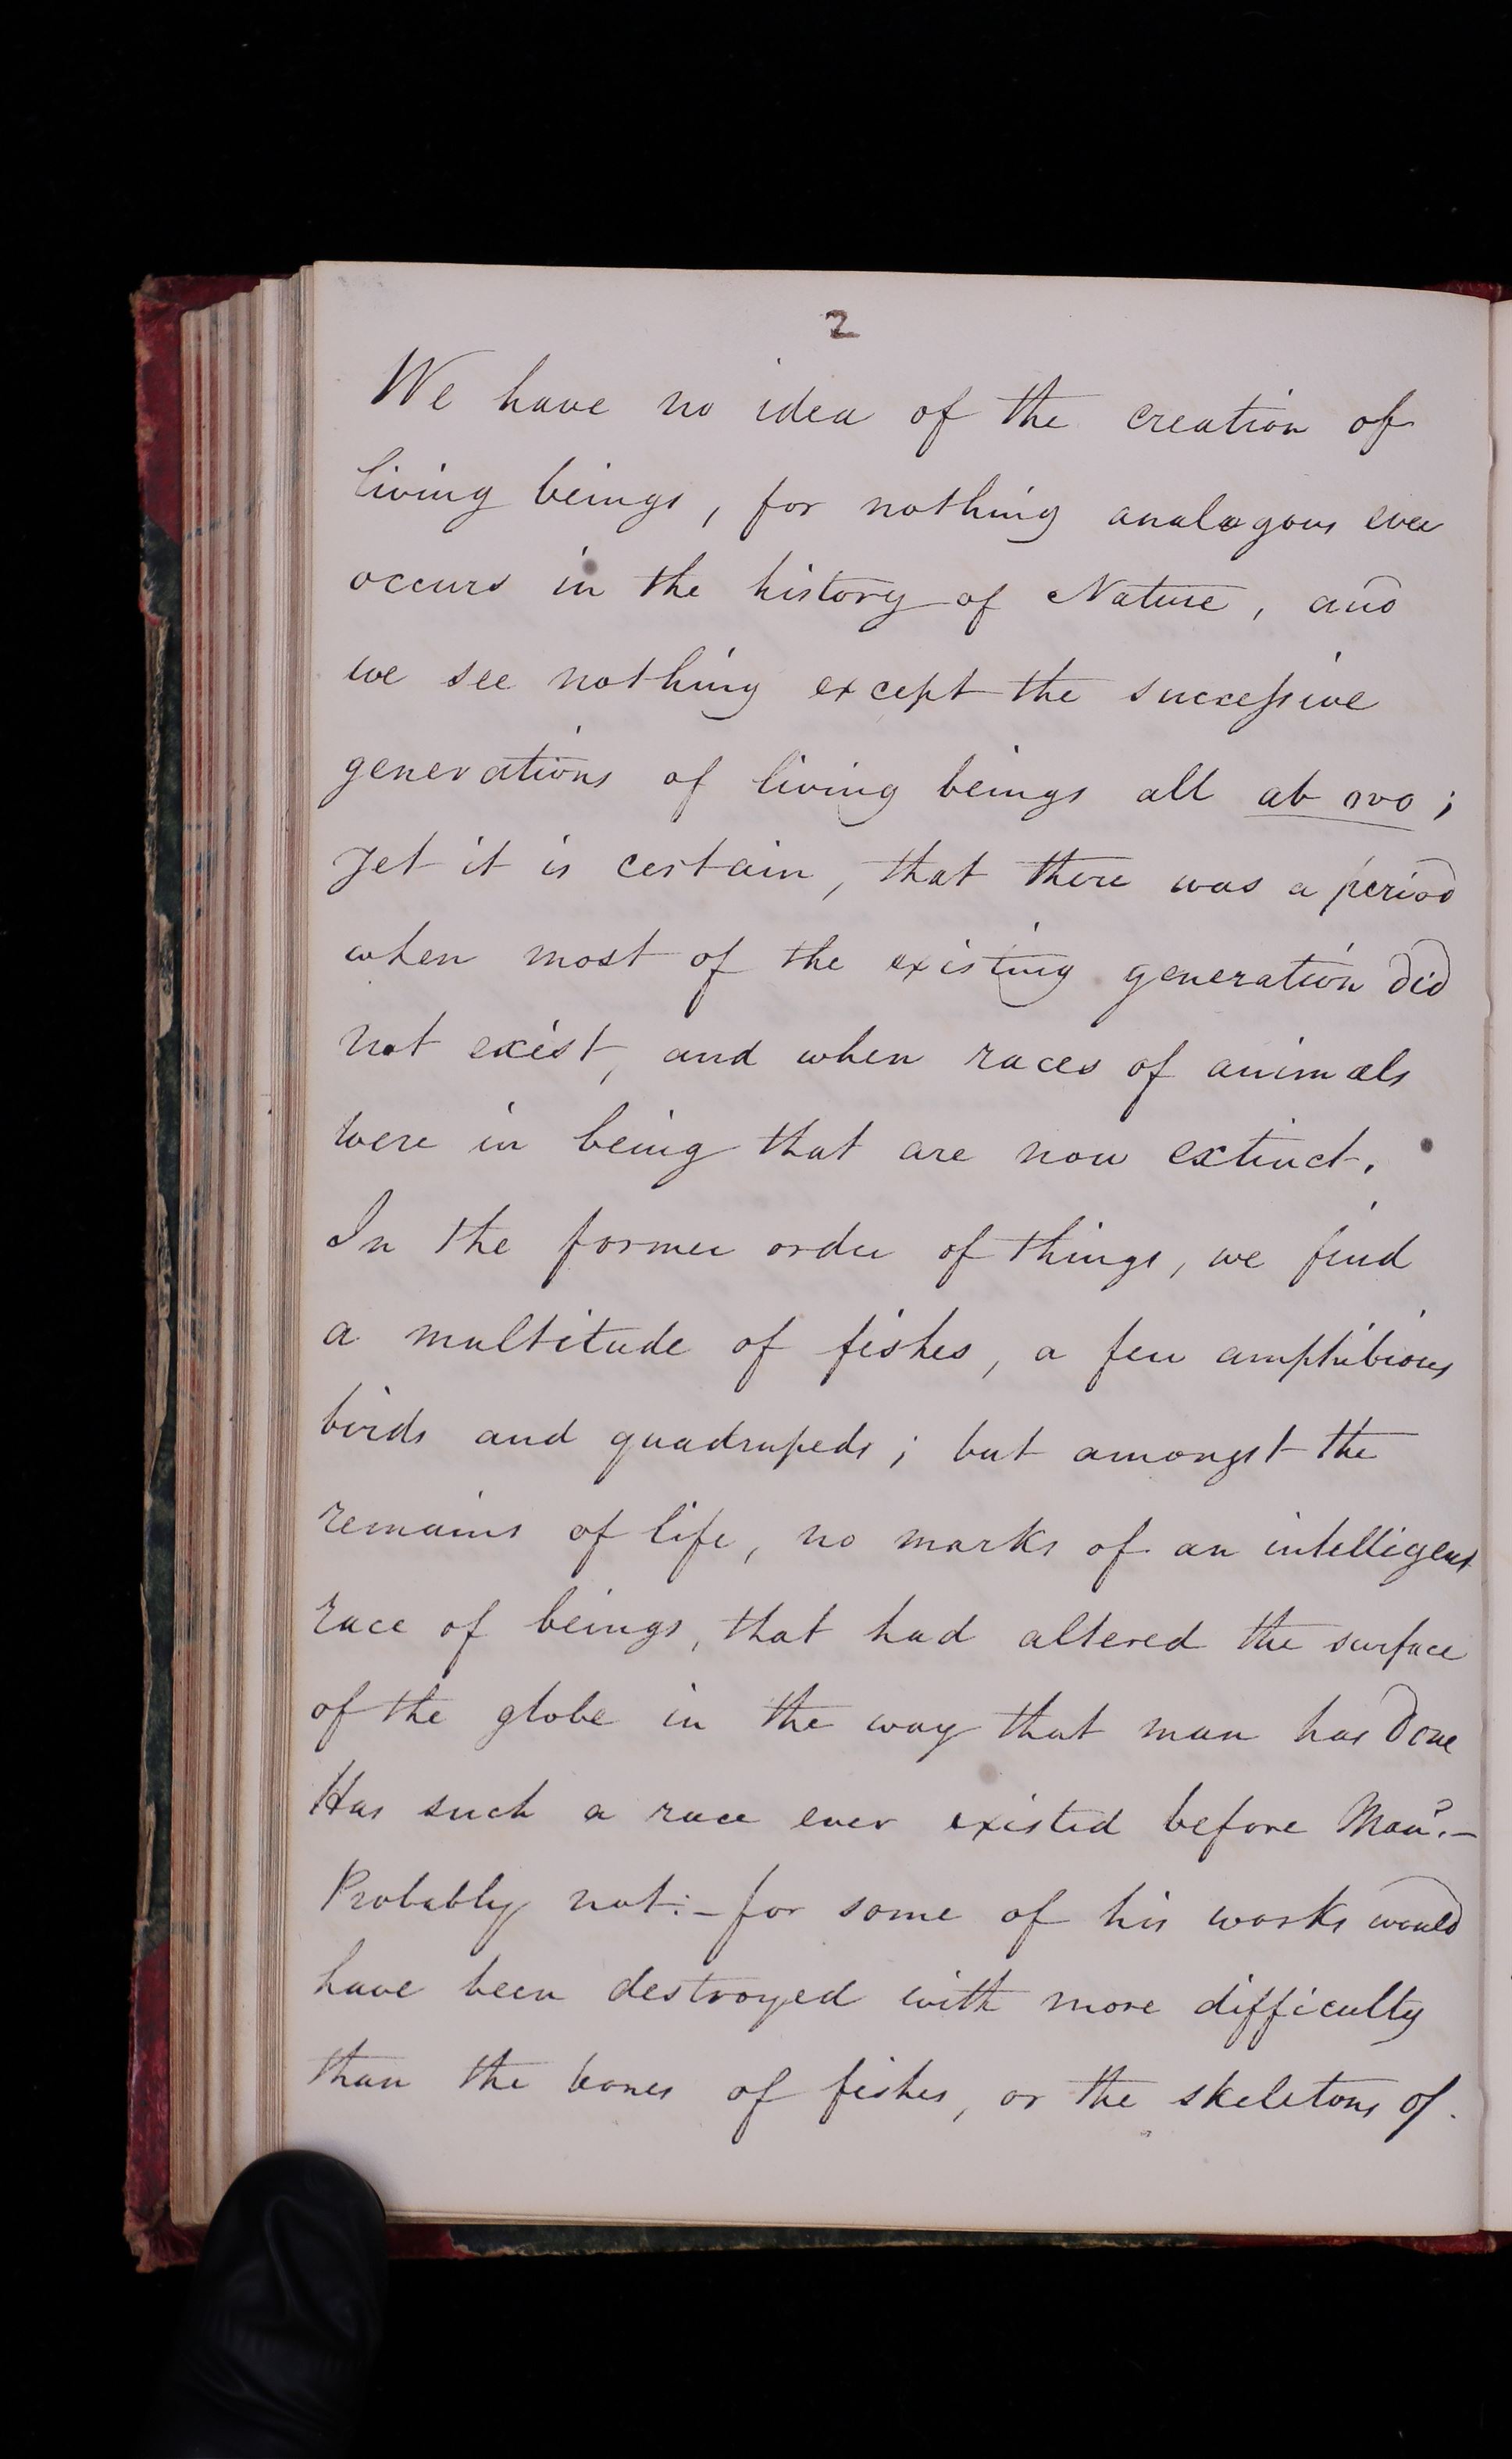 2
We have no idea of the creation of
living beings, for nothing analogous ever
occurs in the history of Nature, and
we see nothing except the successive
generations of living beings all ab ovo;
yet it is certain, that there was a period
when most of the existing generation did
not exist, and when races of animals
were in being that are now extinct.
In the former order of things, we find
a multitude of fishes, a few amphibious
birds and quadrupeds; but amongst the
remains of life, no marks of an intelligent
race of beings, that had altered the surface
of the globe in the way that man has done
Has such a race ever existed before Man?–
Probably not:– for some of his works would
have been destroyed with more difficulty
than the bones of fishes, or the skeletons of